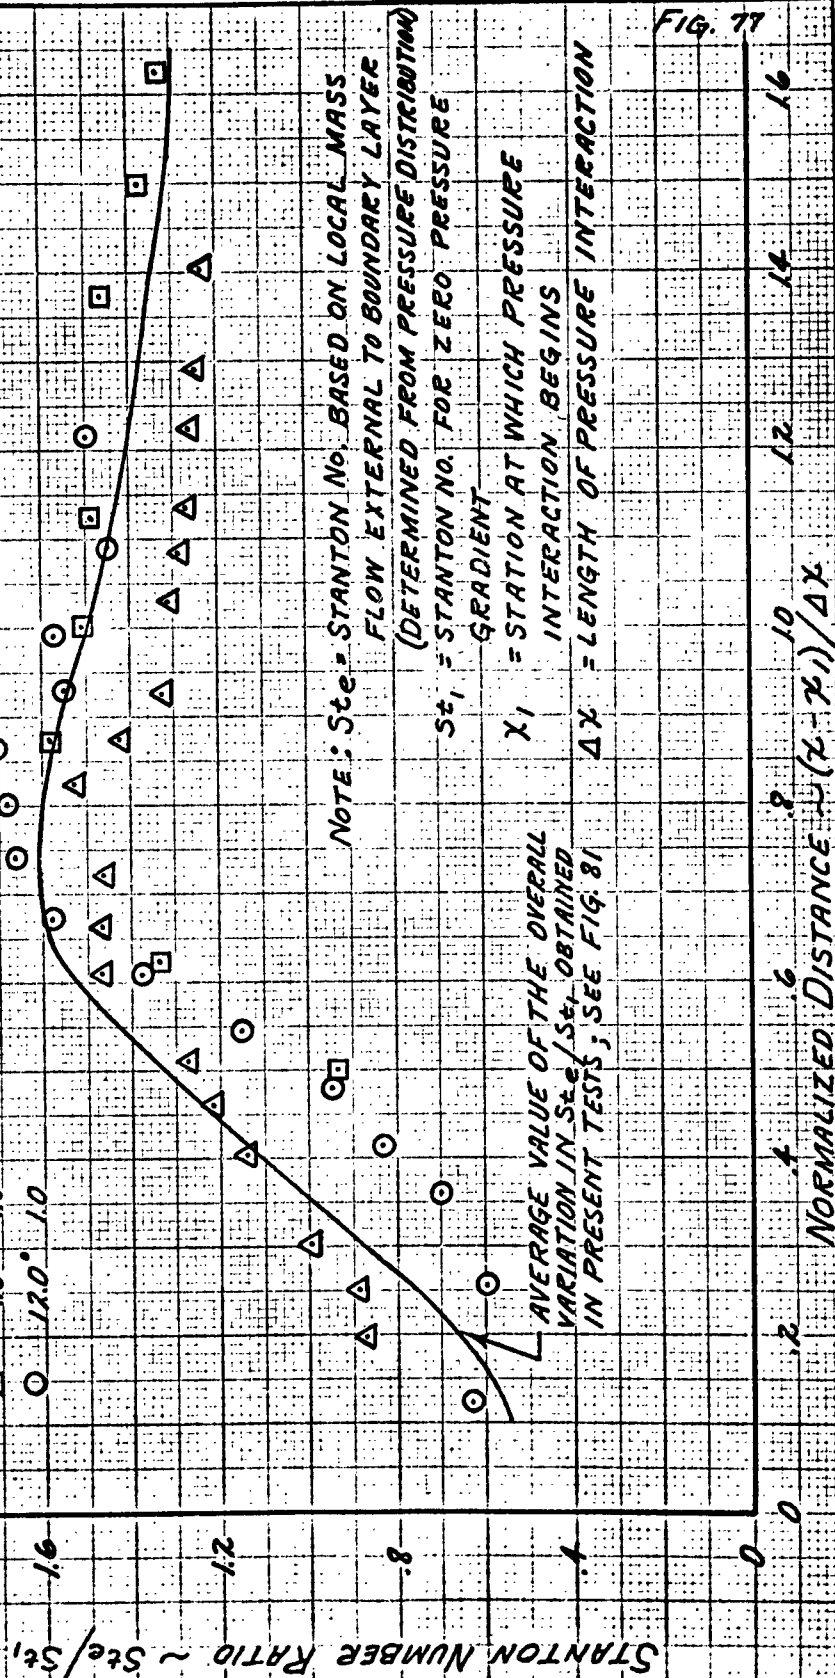 FIG. 77
12.0° 1.0
NOTE: Ste = STANTON NO. BASED ON LOCAL MASS
FLOW EXTERNAL TO BOUNDARY LAYER
(DETERMINED FROM PRESSURE DISTRIBUTION)
St₁ = STANTON NO. FOR ZERO PRESSURE
GRADIENT
X₁ = STATION AT WHICH PRESSURE
INTERACTION BEGINS
ΔX = LENGTH OF PRESSURE INTERACTION
AVERAGE VALUE OF THE OVERALL
VARIATION IN Ste/St₁ OBTAINED
IN PRESENT TESTS; SEE FIG. 81
STANTON NUMBER RATIO ~ Ste/St₁
1.6
1.2
.8
.4
0
0 .2 .4 .6 .8 1.0 1.2 1.4 1.6
NORMALIZED DISTANCE ~ (X-X₁)/ΔX